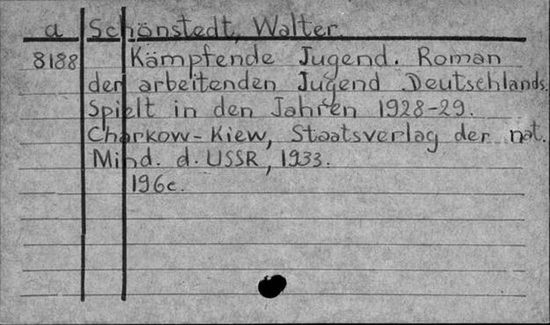 a Schönstedt, Walter.
8188 Kämpfende Jugend. Roman
der arbeitenden Jugend Deutschlands.
Spielt in den Jahren 1928-29.
Charkow-Kiew, Staatsverlag der nat.
Mind. d. USSR, 1933.
196c.